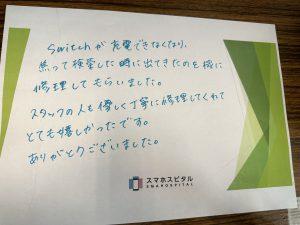 Switchが充電できなくなり、
焦って検索した時に出てきたのを機に
修理してもらいました。
スタッフの人も優しく丁寧に修理してくれて
とても嬉しかったです。
ありがとうございました。
スマホスピタル
SMAHOSPITAL